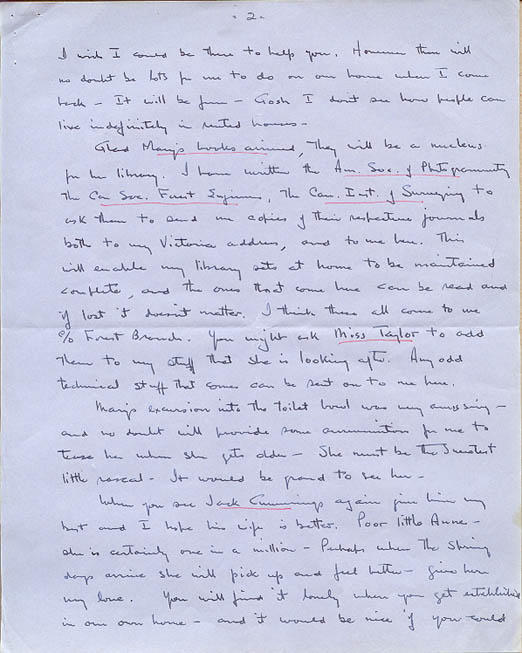 - 2 -
I wish I could be there to help you. However there will
no doubt be lots for me to do on our home when I come
back - It will be fun - Gosh I don't see how people can
live indefinitely in rented houses -
Glad Mary's books arrived, They will be a nucleus
for her library. I have written the Am. Soc. of Photogrammetry
The Can Soc. Forest Engineers, The Can. Inst. of Surveying to
ask them to send me copies of their respective journals
both to my Victoria address, and to me here. This
will enable my library sets at home to be maintained
complete, and the ones that come here can be read and
if lost it doesn't matter. I think these all come to me
c/o Forest Branch. You might ask Miss Taylor to add
them to my stuff that she is looking after. Any odd
technical stuff that comes can be sent on to me here.
Mary's excursion into the toilet bowl was very amusing -
and no doubt will provide some ammunition for me to
tease her when she gets older - She must be the sweetest
little rascal - It would be grand to see her -
When you see Jack Cummings again give him my
best and I hope his wife is better. Poor little Anne -
she is certainly one in a million - Perhaps when the Spring
days arrive she will pick up and feel better - give her
my love. You will find it lonely when you get established
in our own home - and it would be nice if you could